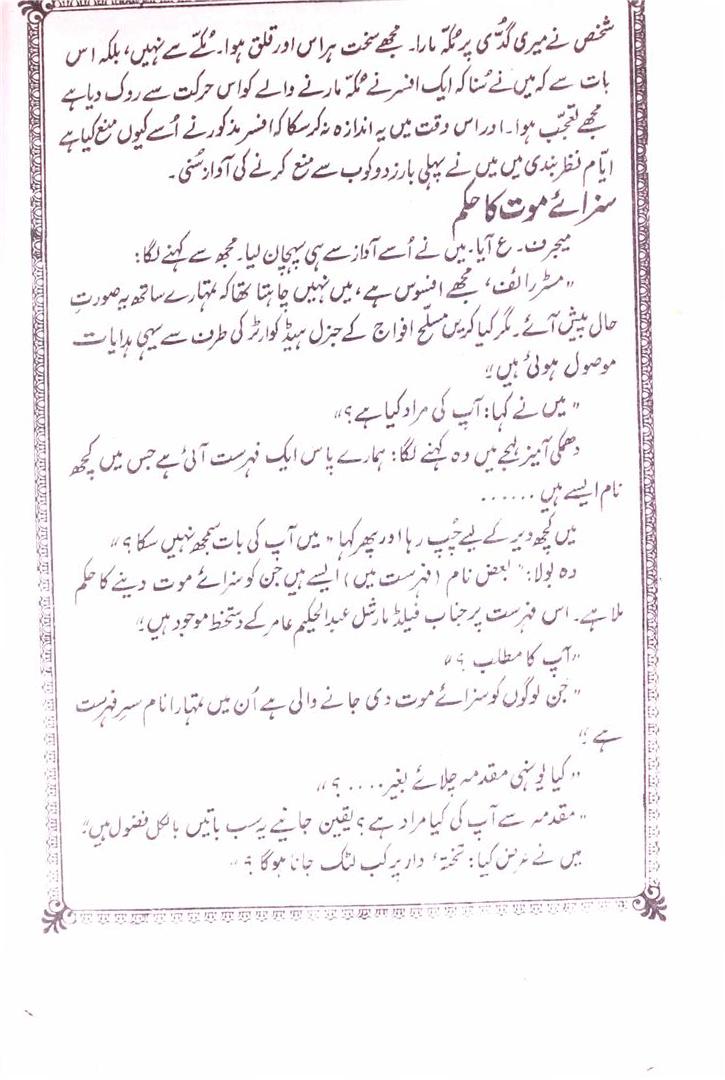 شخص نے میری گُدّی پر مُکّہ مارا۔ مجھے سخت ہراس اور قلق ہوا۔ مُکّے سے نہیں، بلکہ اس
بات سے کہ میں نے سُنا کہ ایک افسر نے مُکّہ مارنے والے کو اس حرکت سے روک دیا ہے
مجھے تعجّب ہوا۔ اور اس وقت میں یہ اندازہ نہ کرسکا کہ افسر مذکور نے اُسے کیوں منع کیا ہے
ایّام نظر بندی میں میں نے پہلی بار زدوکوب سے منع کرنے کی آواز سُنی۔
سزائے موت کا حکم
میجر ف۔ ع آیا۔ میں نے اُسے آواز سے ہی پہچان لیا۔ مجھ سے کہنے لگا:
"مسٹر رائف، مجھے افسوس ہے، میں نہیں چاہتا تھا کہ تمہارے ساتھ یہ صورتِ
حال پیش آئے۔ مگر کیا کریں مسلّح افواج کے جنرل ہیڈ کوارٹر کی طرف سے یہی ہدایات
موصول ہوئی ہیں"
"میں نے کہا: آپ کی مراد کیا ہے؟"
دھمکی آمیز لہجے میں وہ کہنے لگا: ہمارے پاس ایک فہرست آئی ہے جس میں کچھ
نام ایسے ہیں ......
میں کچھ دیر کے لیے چُپ رہا اور پھر کہا "میں آپ کی بات سمجھ نہیں سکا؟"
وہ بولا: "بعض نام (فہرست میں) ایسے ہیں جن کو سزائے موت دینے کا حکم
ملا ہے۔ اس فہرست پر جناب فیلڈ مارشل عبدالحکیم عامر کے دستخط موجود ہیں"
"آپ کا مطلب؟"
"جن لوگوں کو سزائے موت دی جانے والی ہے اُن میں تمہارا نام سرِ فہرست
ہے"
"کیا یونہی مقدمہ چلائے بغیر ....؟"
"مقدمہ سے آپ کی کیا مراد ہے؟ یقین جانیے یہ سب باتیں بالکل فضول ہیں"
میں نے عرض کیا: تختۂ دار پر کب لٹک جانا ہوگا؟"